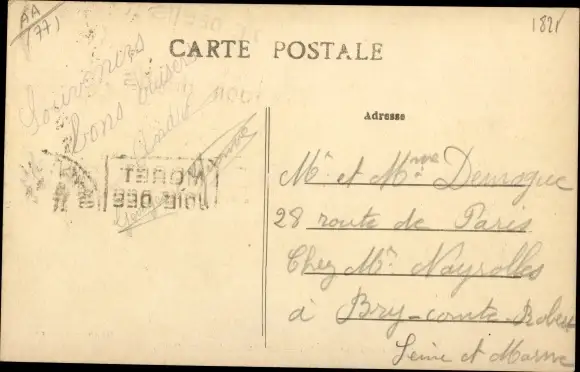 AA
(77)
1821
CARTE POSTALE
Souvenirs
bons baisers
Adresse
MORET
Mr. et Mme Demogue
28 route de Paris
Chez Mr. Nayrolles
à Bry-comte-Robert
Seine et Marne